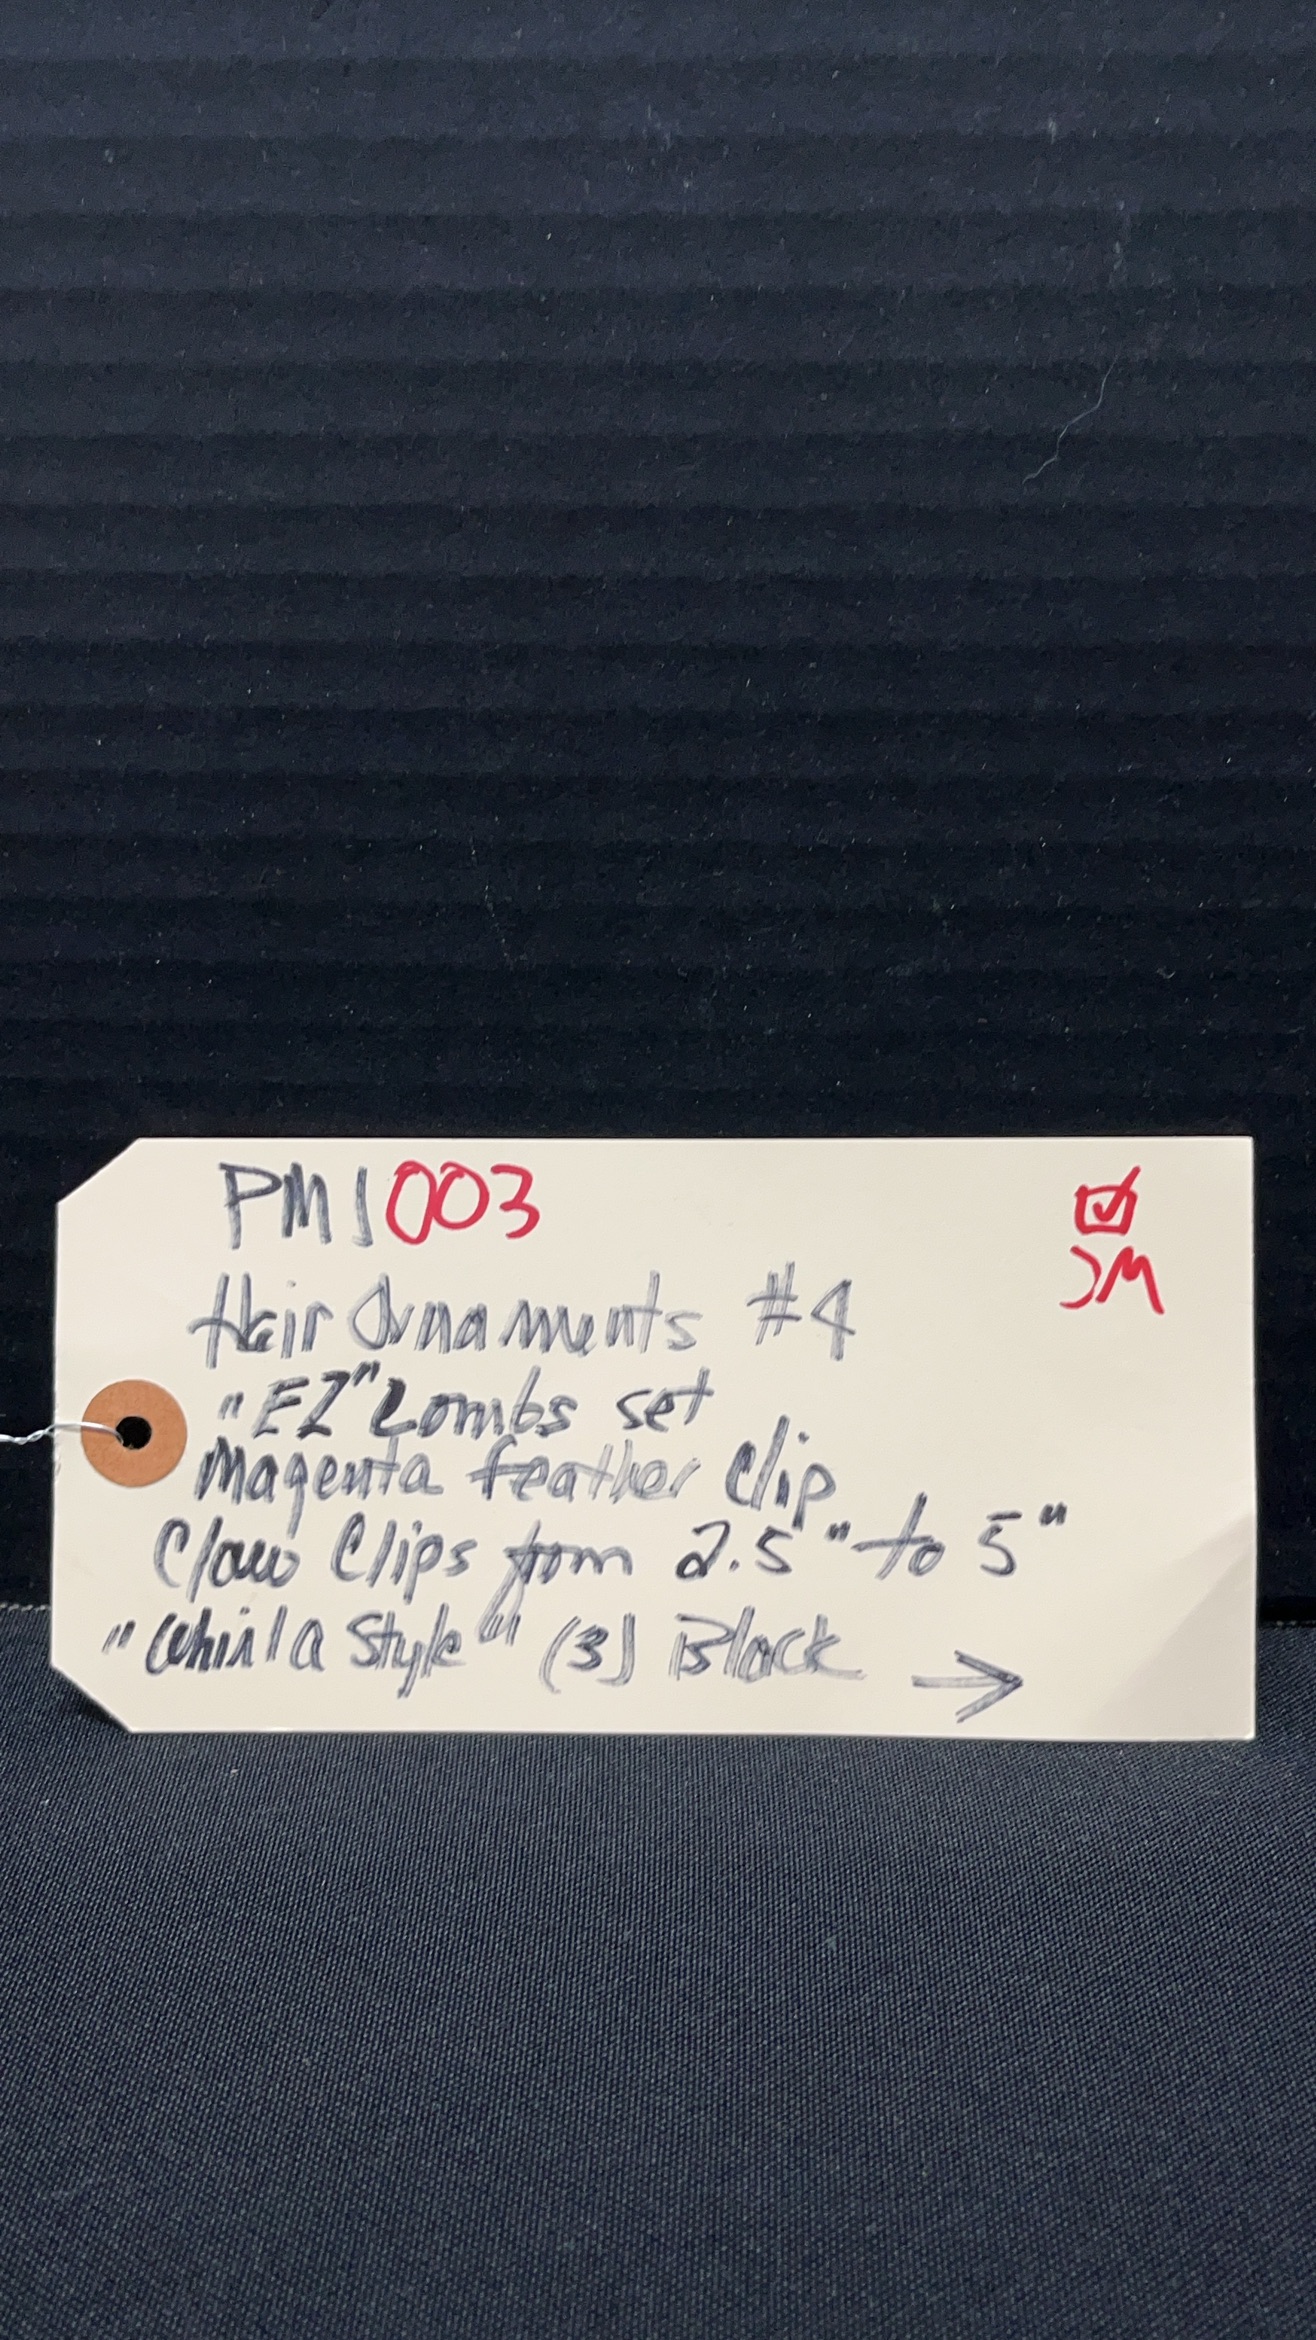 PM1003 ☑
JM
Hair Ornaments #4
"EZ" Combs set
Magenta feather Clip
Claw Clips from 2.5" to 5"
"Whirl a Style" (3) Black →